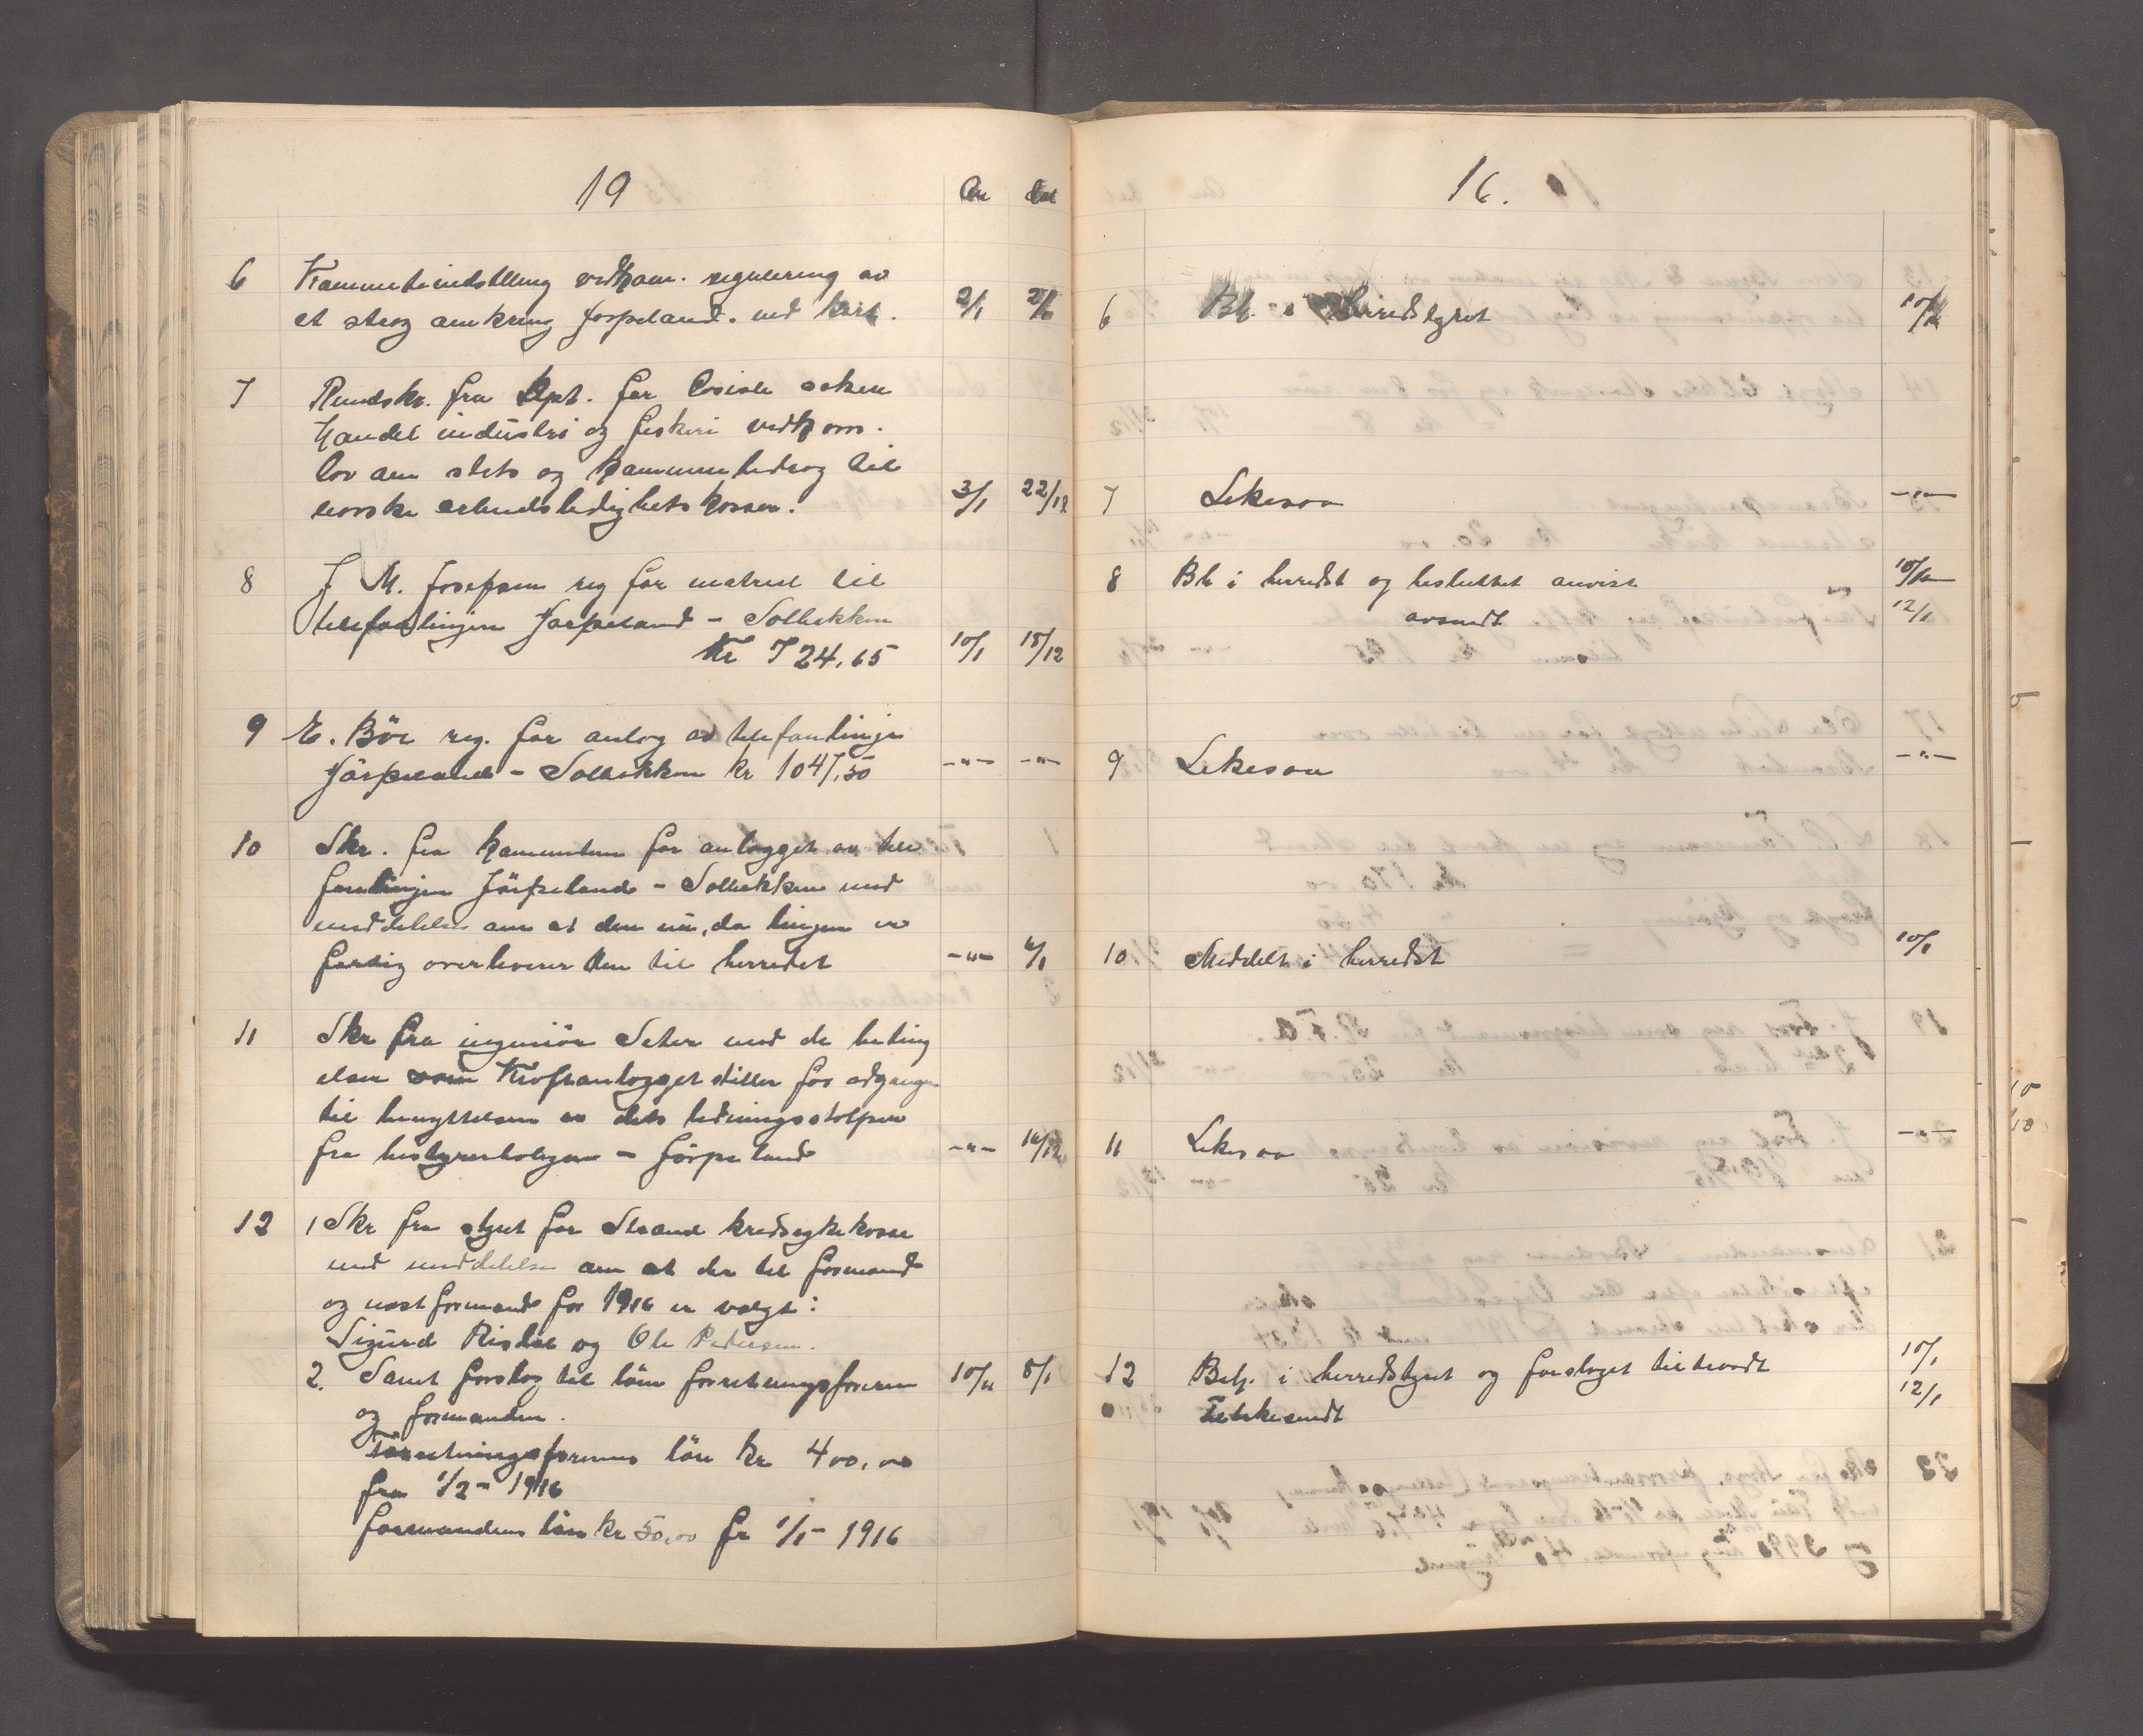 19
An Dat
6 Kommuteindstilling vedkom. regulering av
et strøg omkring Jørpeland. med kart. 2/1
7 Rundskr. fra Dept. for Sosiale saker
handel industri og fiskeri vedkom.
lov om stats og kommunebidrag til
norske arbeidsledighetskasser. 3/1 22/12
8 J. M. Josefsen reg for matriel til
telefonlinjen Jørpeland - Solbakken
Kr 724,65 10/1 18/12
9 E. Böe reg. for anlæg av telefonlinje
Jörpeland - Solbakken kr 1047,50 -"- -"-
10 Skr. fra komiteen for anlægget av tele
fonlinjen Jörpeland - Solbakken med
meddelelse om at den nu, da linjen er
færdig overleverer den til herredet -"- 6/1
11 Skr fra ingeniör Seter med de beting
elser som Kraftanlægget stiller for adgangen
til benyttelsen av dets ledningsstolper
fra bestyrerboligen - Jörpeland -"-
12 1 Skr fra styret for Strand kredssykekasse
med meddelelse om at der til formand
og næstformand for 1916 er valgt:
Sigurd Riskel og Ole Pedersen.
2. Samt forslag til løn forretningsföreren 8/1
og formanden.
Forretningsførerens lön kr 400,00
fra 1/2 - 1916
formandens lön kr 50,00 fr 1/1 - 1916
16.
6 Bh. i herredstyret
7 Likesaa -"-
8 Bh i herredst og besluttet anvist
avsendt 12/1
9 Likesaa -"-
10 Meddelt i herredst 10/1
11 Likesaa -"-
12 Beh. i herredstyret og forslaget tiltraadt 10/1
Tilbakesendt 12/1